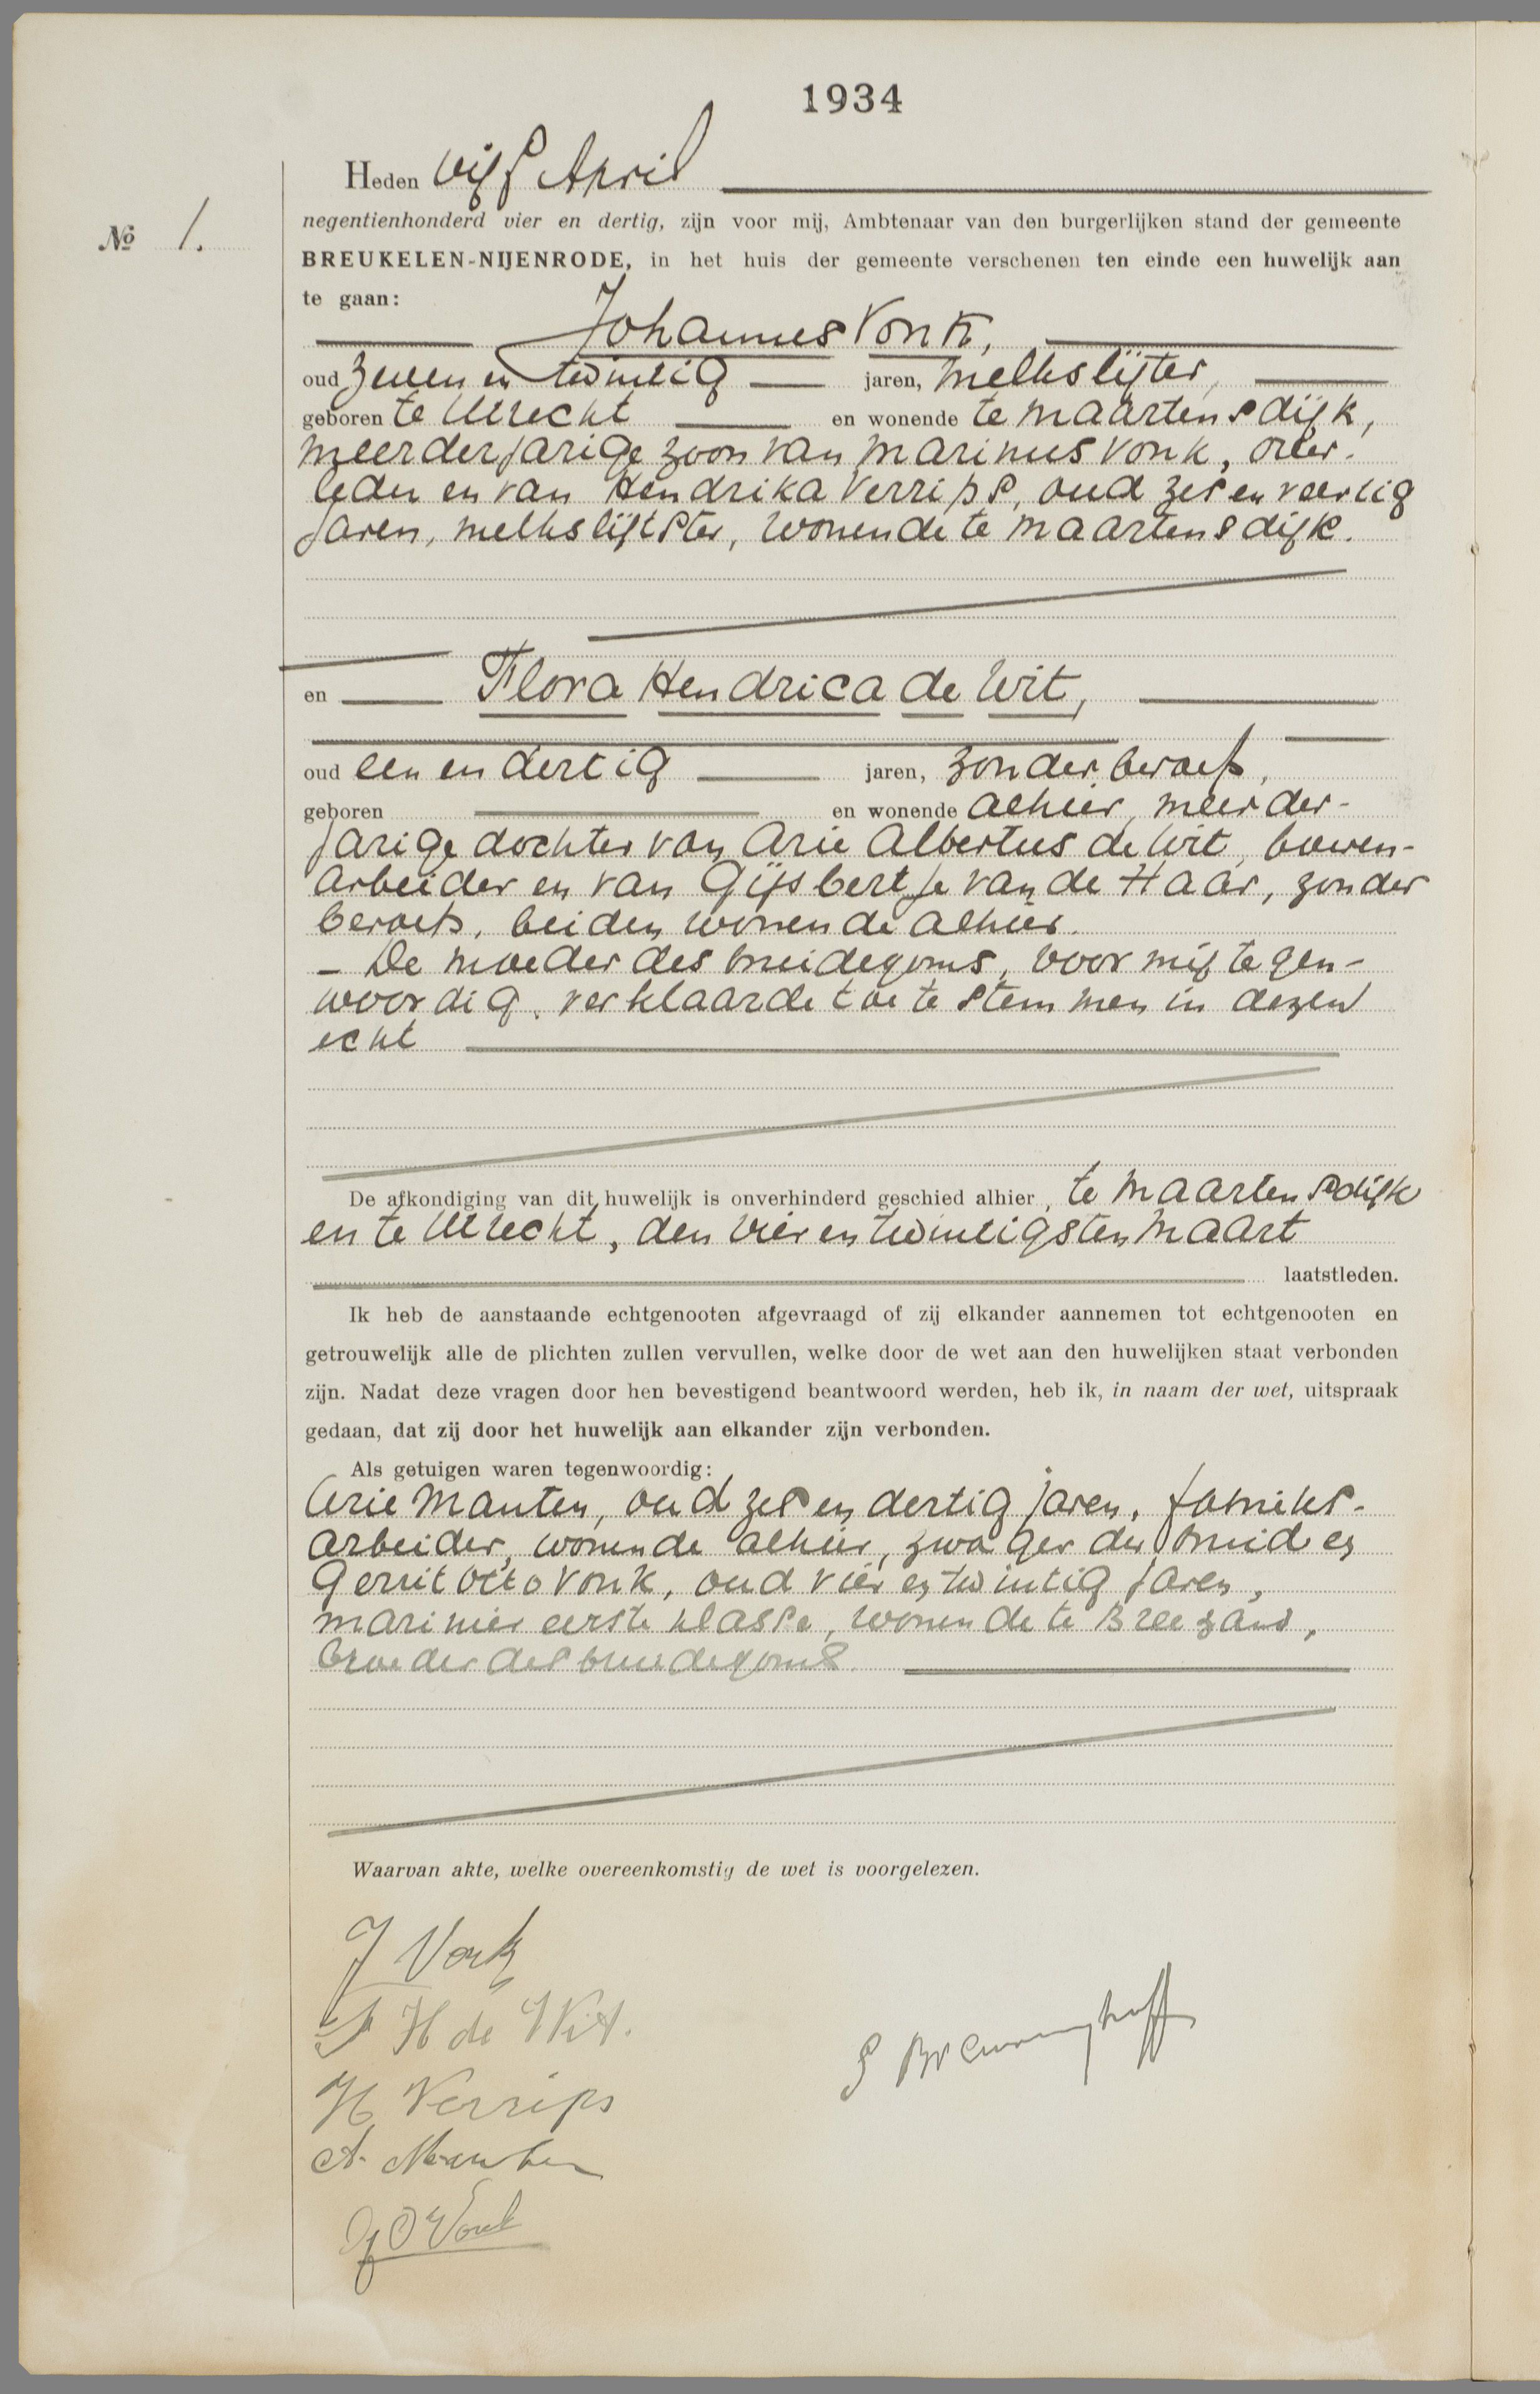 1934
Heden vijf April
negentienhonderd vier en dertig, zijn voor mij, Ambtenaar van den burgerlijken stand der gemeente
№ 1.
BREUKELEN-NIJENRODE, in het huis der gemeente verschenen ten einde een huwelijk aan
te gaan:
Johannes Vonk,
oud zeven en twintig jaren, melkslijter,
geboren te Utrecht en wonende te Maartensdijk,
meerderjarige zoon van Marinus Vonk, over-
leden en van Hendrika Verrips, oud zes en veertig
jaren, melkslijtster, wonende te Maartensdijk.
en Flora Hendrica de Wit,
oud een en dertig jaren, zonder beroep,
geboren en wonende alhier, meerder-
jarige dochter van Arie Albertus de Wit, bouwen-
arbeider en van Gijsbertje van de Haar, zonder
beroep, beiden wonende alhier.
- De moeder des bruidegoms, voor mij tegen-
woordig, verklaarde toe te stemmen in dezen
echt
De afkondiging van dit huwelijk is onverhinderd geschied alhier, te Maartensdijk
en te Utrecht, den vier en twintigsten Maart
laatstleden.
Ik heb de aanstaande echtgenooten afgevraagd of zij elkander aannemen tot echtgenooten en
getrouwelijk alle de plichten zullen vervullen, welke door de wet aan den huwelijken staat verbonden
zijn. Nadat deze vragen door hen bevestigend beantwoord werden, heb ik, in naam der wet, uitspraak
gedaan, dat zij door het huwelijk aan elkander zijn verbonden.
Als getuigen waren tegenwoordig:
Arie Manten, oud zes en dertig jaren, fabrieks-
arbeider, wonende alhier, zwager der bruid en
Gerrit Otto Vonk, oud vier en twintig jaren,
marinier eerste klasse, wonende te Breezand,
broeder des bruidegoms.
Waarvan akte, welke overeenkomstig de wet is voorgelezen.
J Vonk
F H de Wit.
H Verrips
A. Manten
G O Vonk